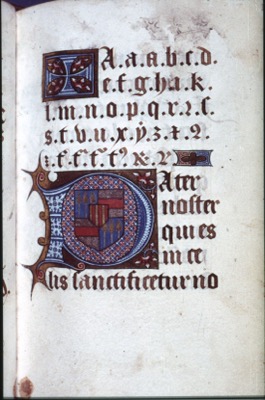 A.a.a.b.c.d.
e.f.g.h.i.k.
l.m.n.o.p.q.r.ꝛ.ſ.
s.t.v.u.x.ẏ.z.
Pater
noſter
qui es
in ce
lis ſanctificetur no